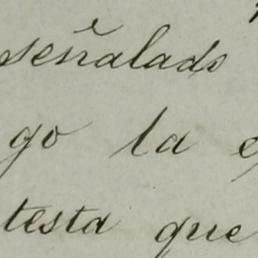 señalado
go la
testa que